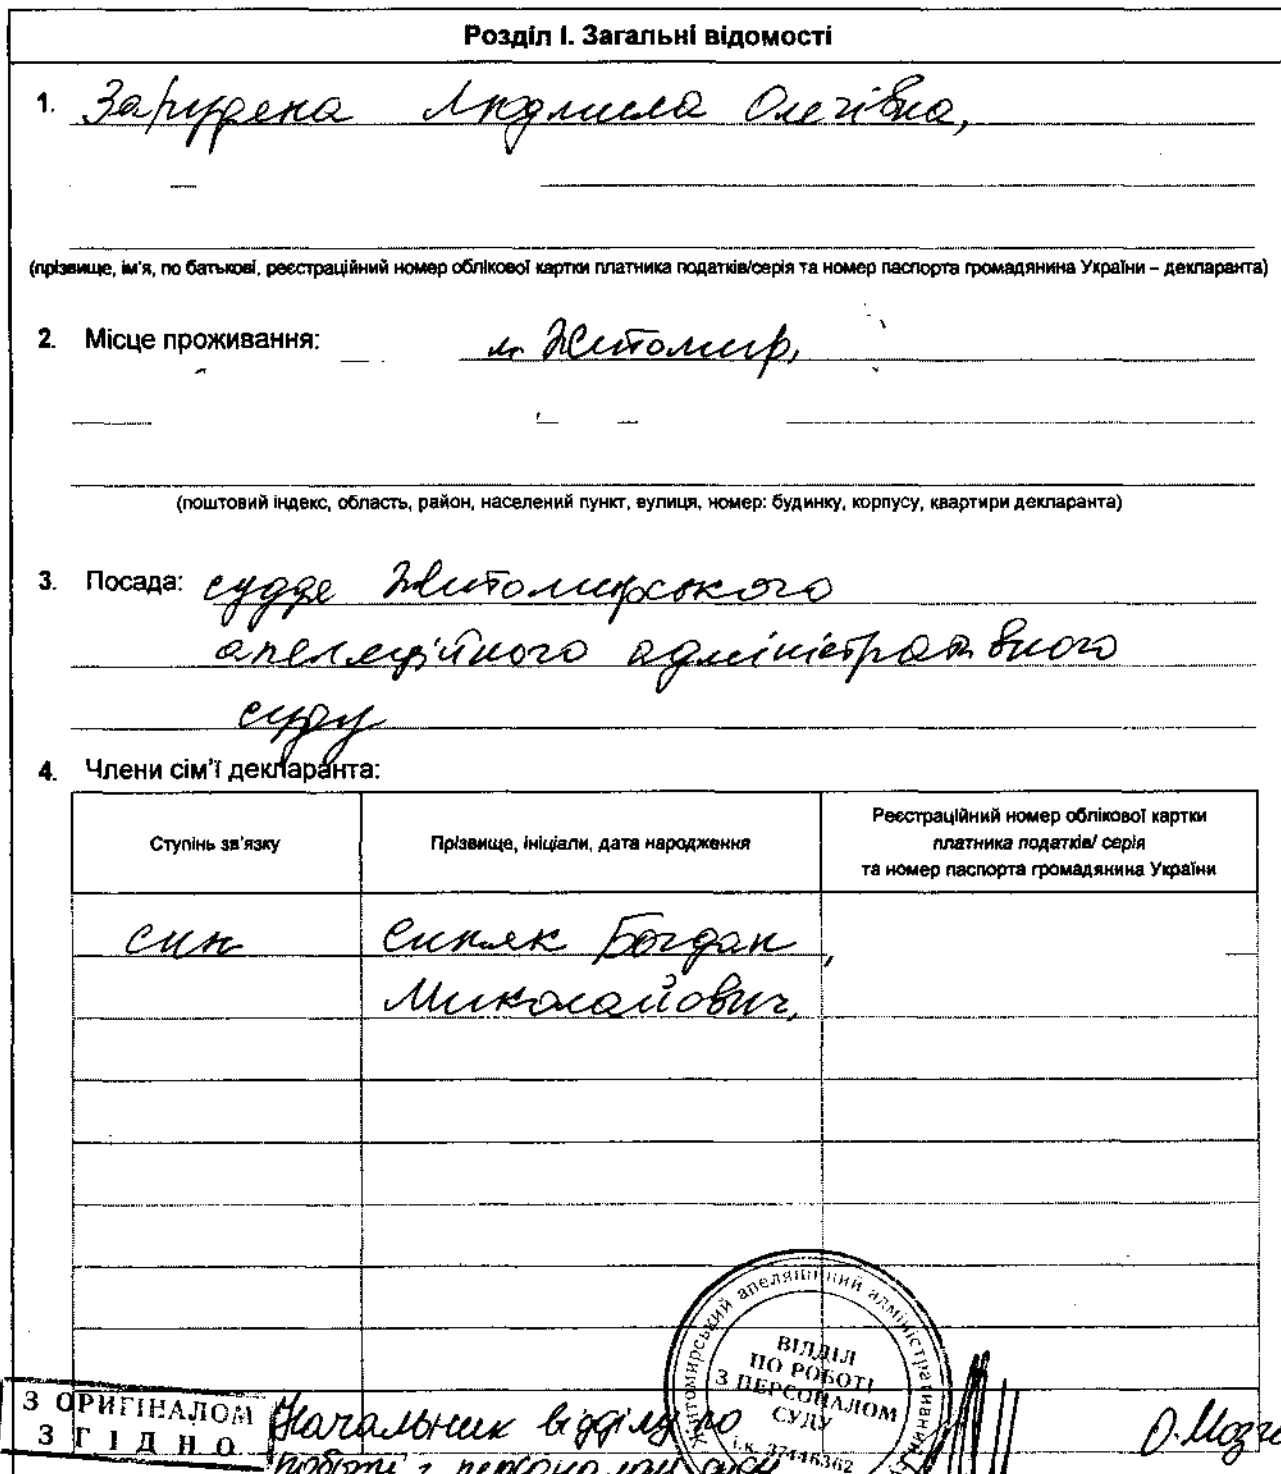 Розділ І. Загальні відомості
1. Зарудяна Людмила Олегівна,
(прізвище, ім'я, по батькові, реєстраційний номер облікової картки платника податків/серія та номер паспорта громадянина України – декларанта)
2. Місце проживання: м. Житомир,
(поштовий індекс, область, район, населений пункт, вулиця, номер: будинку, корпусу, квартири декларанта)
3. Посада: суддя Житомирського
апеляційного адміністративного
суду
4. Члени сім'ї декларанта:
Ступінь зв'язку
Прізвище, ініціали, дата народження
Реєстраційний номер облікової картки
платника податків/ серія
та номер паспорта громадянина України
син
Синяк Богдан,
Миколайович,
Житомирський апеляційний адміністративний
ВІДДІЛ
ПО РОБОТІ
З ПЕРСОНАЛОМ
СУДУ
і.к. 37446362
З ОРИГІНАЛОМ
ЗГІДНО
Начальник відділу по
роботі з персоналом суду